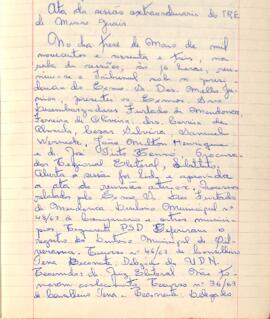 Ata da sessão extraordinária do TRE
de Minas Gerais
No dia treze de Maio de mil
novecentos e sessenta e três, na
sala de sessões, às 16 horas, reu
niu-se o Tribunal sob a presi
dência do Exmo. S. Des. Mello Jú
nior, presentes os Exmos Srs
Desembargadores Furtado de Mendonça
Ferreira de Oliveira, drs. Correia de
Almeida, Cezar Silveira, Samuel
Werneck, João Milton Henrique
e dr. José Pinto Renó, Procura
dor Regional Eleitoral, Substituto
Aberta a sessão foi lida e aprovada
a ata da reunião anterior.
relatados pelo Exmo. S. Des. Furtado
de Mendonça Diretório Municipal nº
48/63 de e outros muni
cípios, Requerente PSD Deferiram o
registro do Diretório Municipal de
Recurso nº 46/63 de Conselheiro
Pena Recorrente Delegado da U.D.N.
Recorrido: dr. Juiz Eleitoral Não to
maram conhecimento. Recurso nº 36/63
de Conselheiro Pena - Recorrente Delegado